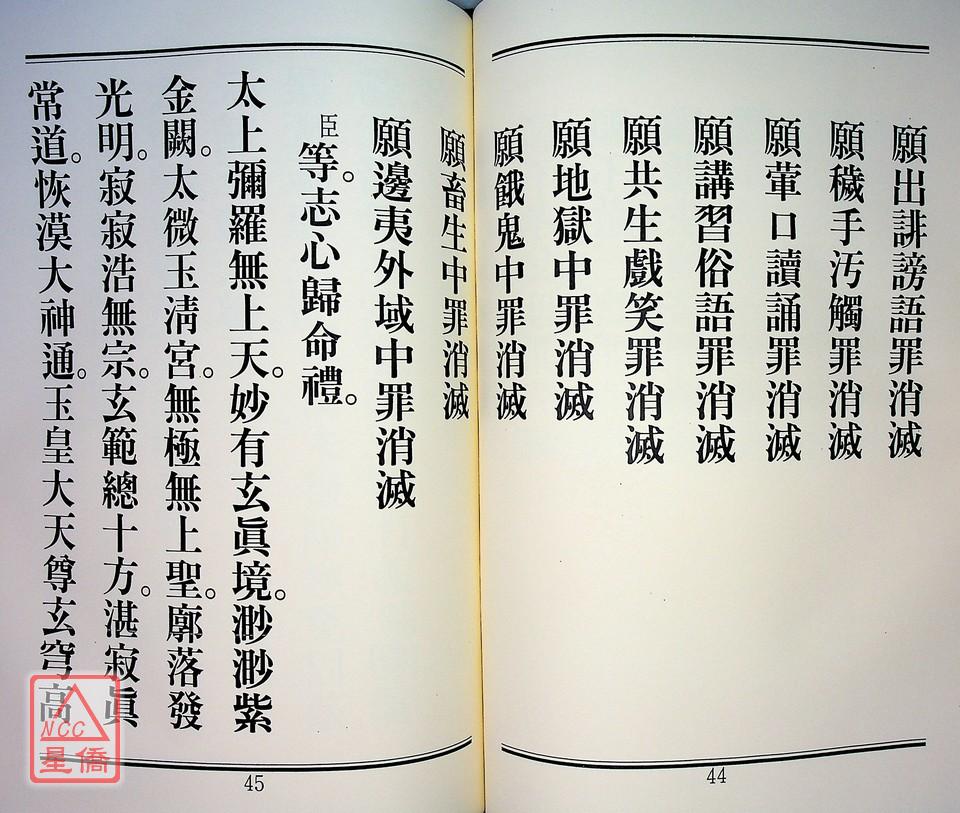 願出誹謗語罪消滅
願穢手汚觸罪消滅
願葷口讀誦罪消滅
願講習俗語罪消滅
願共生戲笑罪消滅
願地獄中罪消滅
願餓鬼中罪消滅
44
願畜生中罪消滅
願邊夷外域中罪消滅
臣等。志心歸命禮。
太上彌羅無上天。妙有玄眞境。渺渺紫
金闕。太微玉淸宮。無極無上聖。廓落發
光明。寂寂浩無宗。玄範總十方。湛寂眞
常道。恢漠大神通。玉皇大天尊玄穹高
45
NCC
星僑